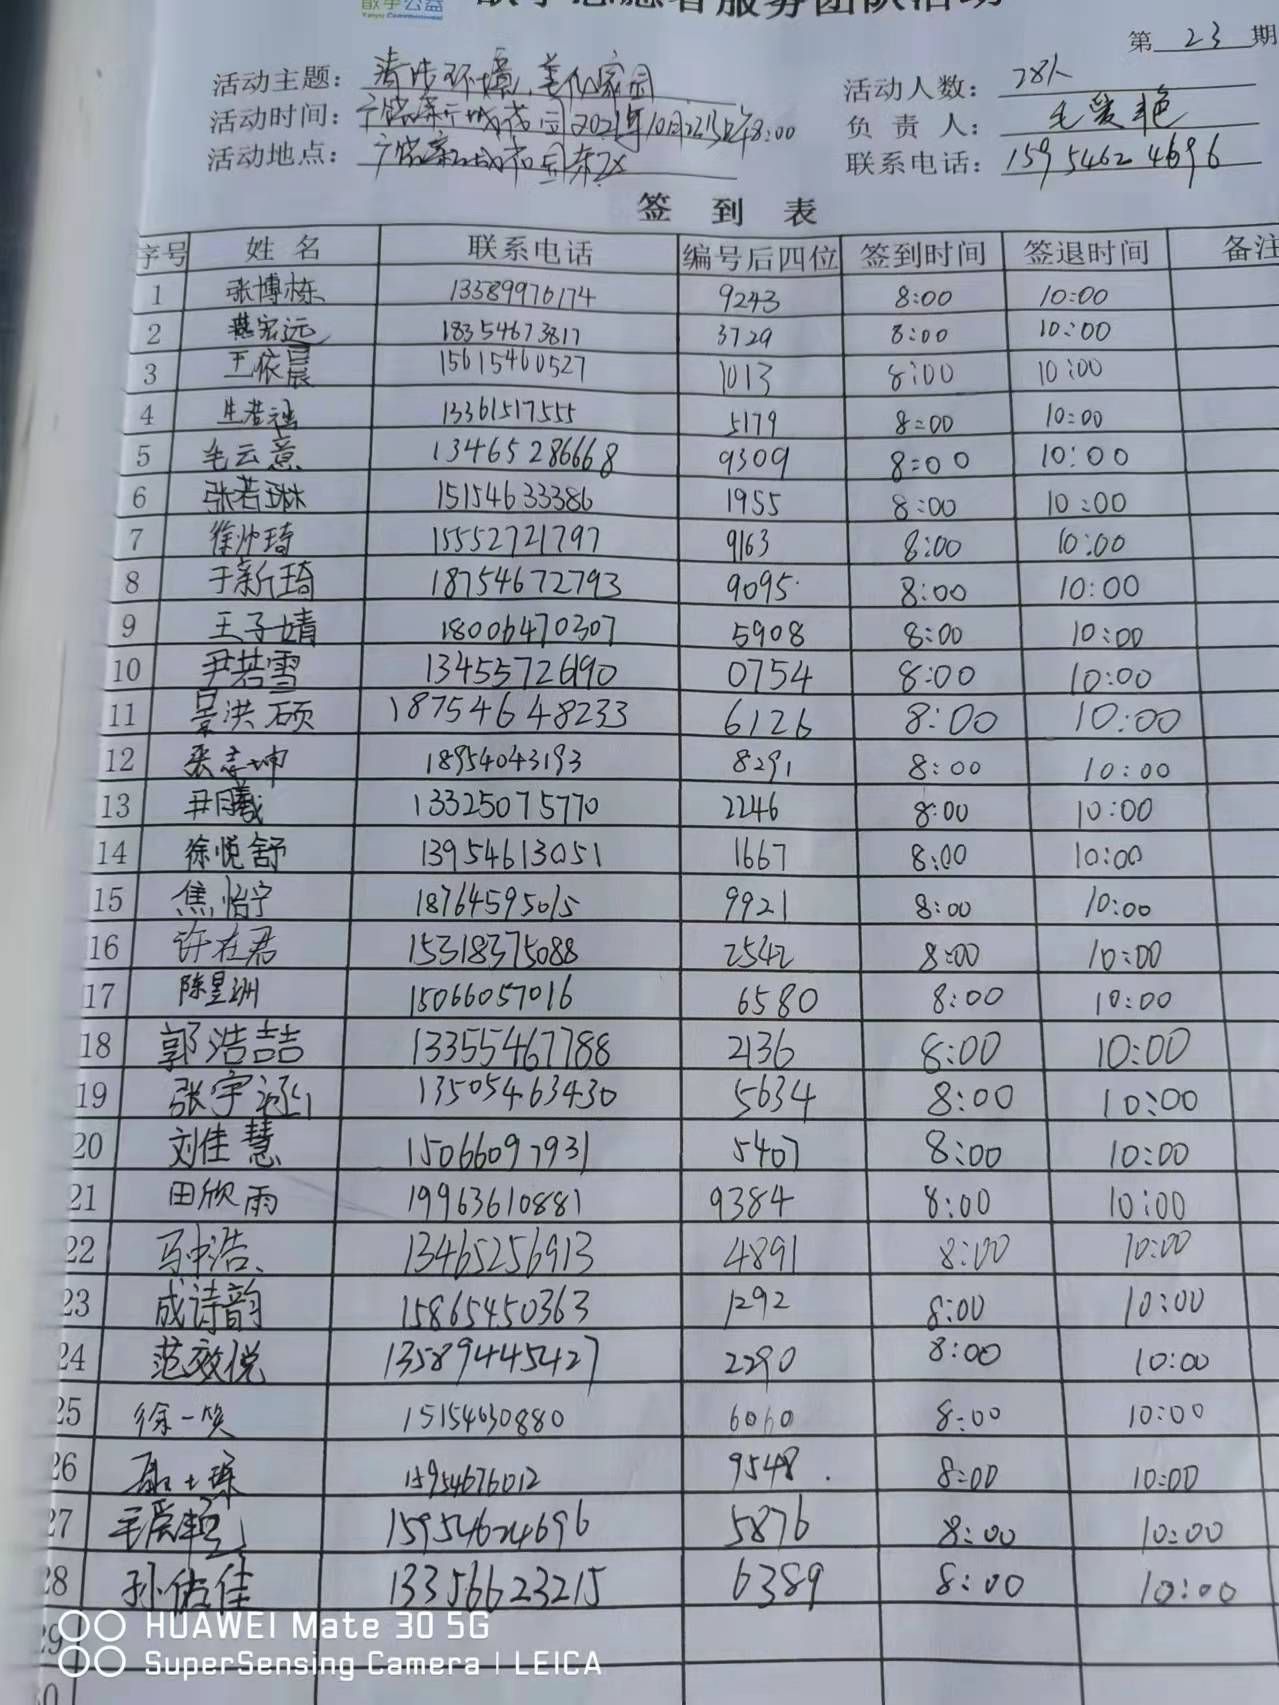 公益
志愿者服务团队活动
第 23 期
活动主题： 清洁环境，美化家园
活动人数： 28人
活动时间： 2021年10月 8:00
负 责 人： 毛爱艳
活动地点：
联系电话： 15954624696
签 到 表
序号 姓 名 联系电话 编号后四位 签到时间 签退时间 备注
1 张博栋 13589976174 9243 8:00 10:00
2 燕宏远 18354673817 3729 8:00 10:00
3 王依晨 15615460527 1013 8:00 10:00
4 13361517555 5179 8:00 10:00
5 毛云意 13465286668 9309 8:00 10:00
6 张若琳 15154633386 1955 8:00 10:00
7 徐帅琦 15552721797 9163 8:00 10:00
8 于新琦 18754672793 9095 8:00 10:00
9 王子婧 18006470307 5908 8:00 10:00
10 尹若雪 13455726190 0754 8:00 10:00
11 景洪硕 18754648233 6126 8:00 10:00
12 18954043193 8291 8:00 10:00
13 尹曦 13325075770 2246 8:00 10:00
14 徐悦舒 13954613051 1667 8:00 10:00
15 焦怡宁 18764595015 9921 8:00 10:00
16 许在君 15318375088 2542 8:00 10:00
17 陈昱洲 15066057016 6580 8:00 10:00
18 郭浩喆 13355467788 2136 8:00 10:00
19 张宇涵 13505463430 5634 8:00 10:00
20 刘佳慧 15066097931 5407 8:00 10:00
21 田欣雨 19963610881 9384 8:00 10:00
22 马中浩 13465256913 4891 8:00 10:00
23 成诗韵 15865450363 1292 8:00 10:00
24 范效悦 13589445427 2290 8:00 10:00
25 徐一笑 15154630880 6060 8:00 10:00
26 15954676012 9548 8:00 10:00
27 毛爱艳 15954624696 5876 8:00 10:00
28 孙佑佳 13356623215 6389 8:00 10:00
29
30
HUAWEI Mate 30 5G
SuperSensing Camera | LEICA